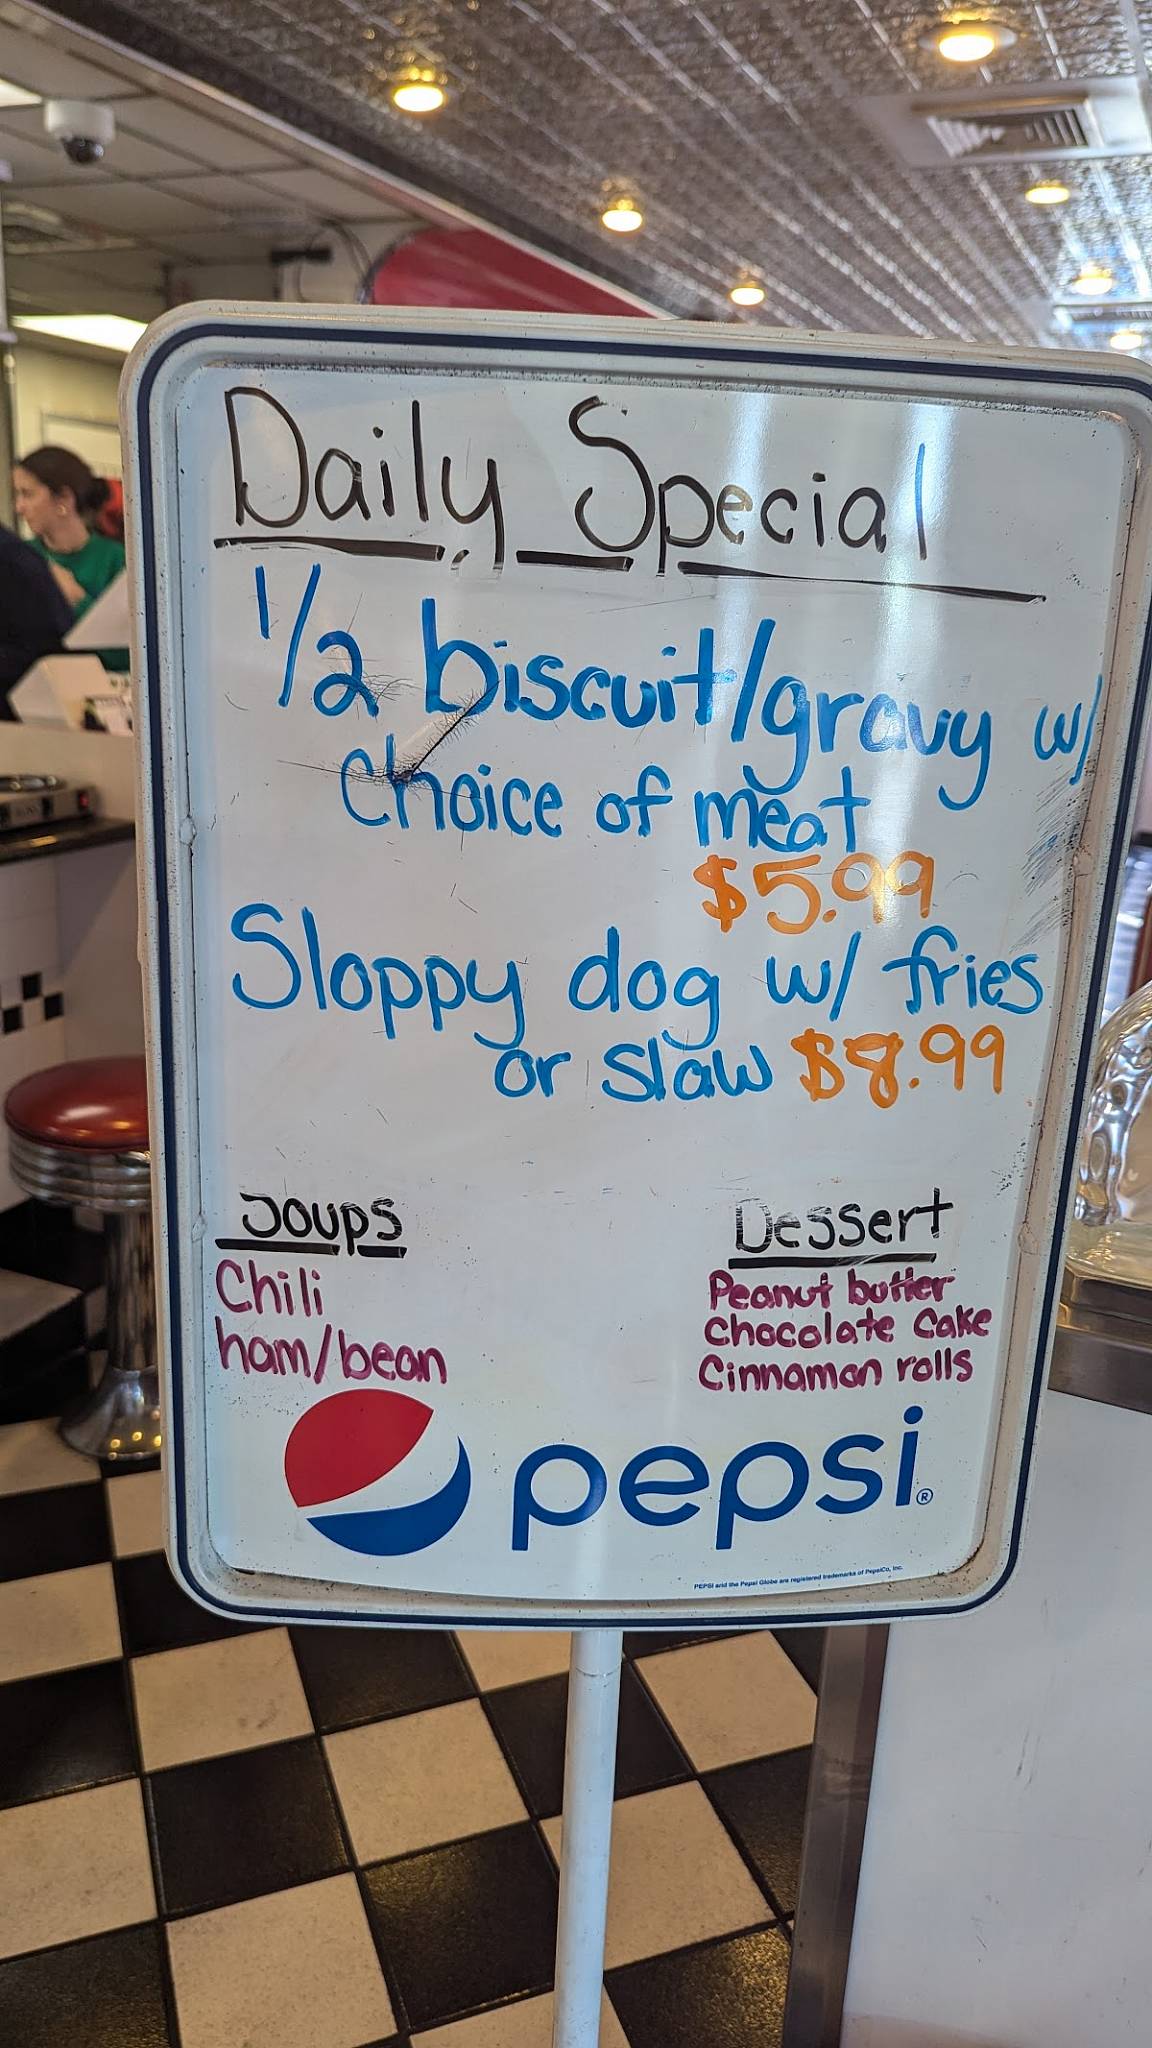 Daily Special
1/2 biscuit/gravy w/
choice of meat
$5.99
Sloppy dog w/ fries
or slaw $8.99
Soups
Chili
ham/bean
Dessert
Peanut butter
Chocolate Cake
Cinnamon rolls
pepsi®
PEPSI and the Pepsi Globe are registered trademarks of PepsiCo, Inc.